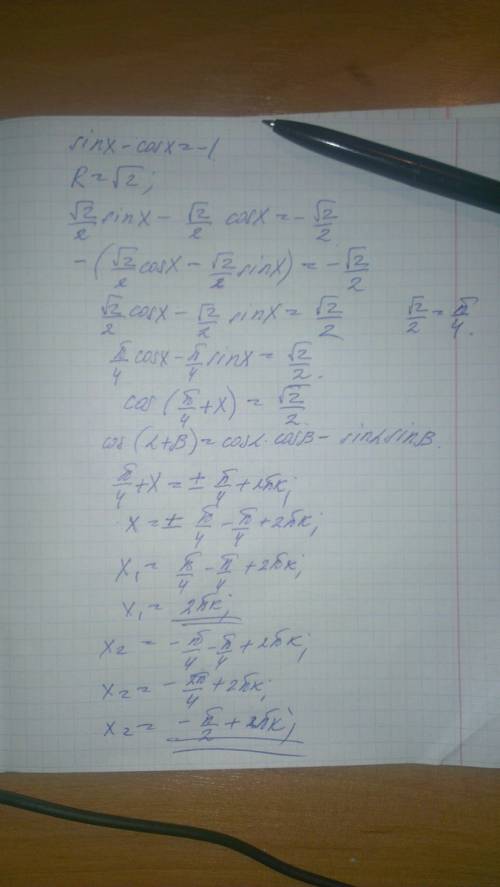 sinx - cosx = -1
R = √2;
√2/2 sinx - √2/2 cosx = - √2/2
- (√2/2 cosx - √2/2 sinx) = - √2/2
√2/2 cosx - √2/2 sinx = √2/2 √2/2 = π/4.
π/4 cosx - π/4 sinx = √2/2.
cos (π/4 + x) = √2/2.
cos (α+β) = cosα · cosβ - sinα sinβ.
π/4 + x = ± π/4 + 2πk;
x = ± π/4 - π/4 + 2πk;
x₁ = π/4 - π/4 + 2πk;
x₁ = 2πk;
x₂ = - π/4 - π/4 + 2πk;
x₂ = - 2π/4 + 2πk;
x₂ = - π/2 + 2πk;